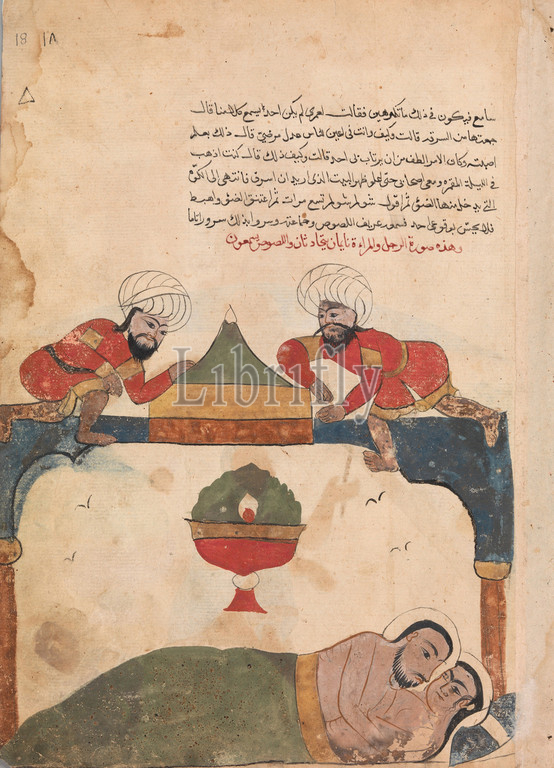 18 ١٨
سامع فيكون في ذلك ما تكرهين فقالت لعمري لم يكن احد يسمع كلامنا قال
جمعتها من السرقة قالت وكيف وانت في اعين الناس عدل مرضي قال ذلك بعلم
اصبته وكان الامر الطف من ان يرتاب بي احد قالت وكيف ذلك قال كنت اذهب
في الليلة المقمرة ومعي اصحابي حتى اعلو ظهر البيت الذي اريد ان اسرق فانتهي الى الكوة
التي يدخل منها الضوء ثم اقول شولم شولم سبع مرات ثم اعتنق الضوء واهبط
فلا يحس بوقوعي احد فسمعه عريف اللصوص وجماعته وسروا بذلك سرورا تاما
وهذه صورة الرجل والمراة نايمان يتحادثان واللصوص يسمعون
Librifly